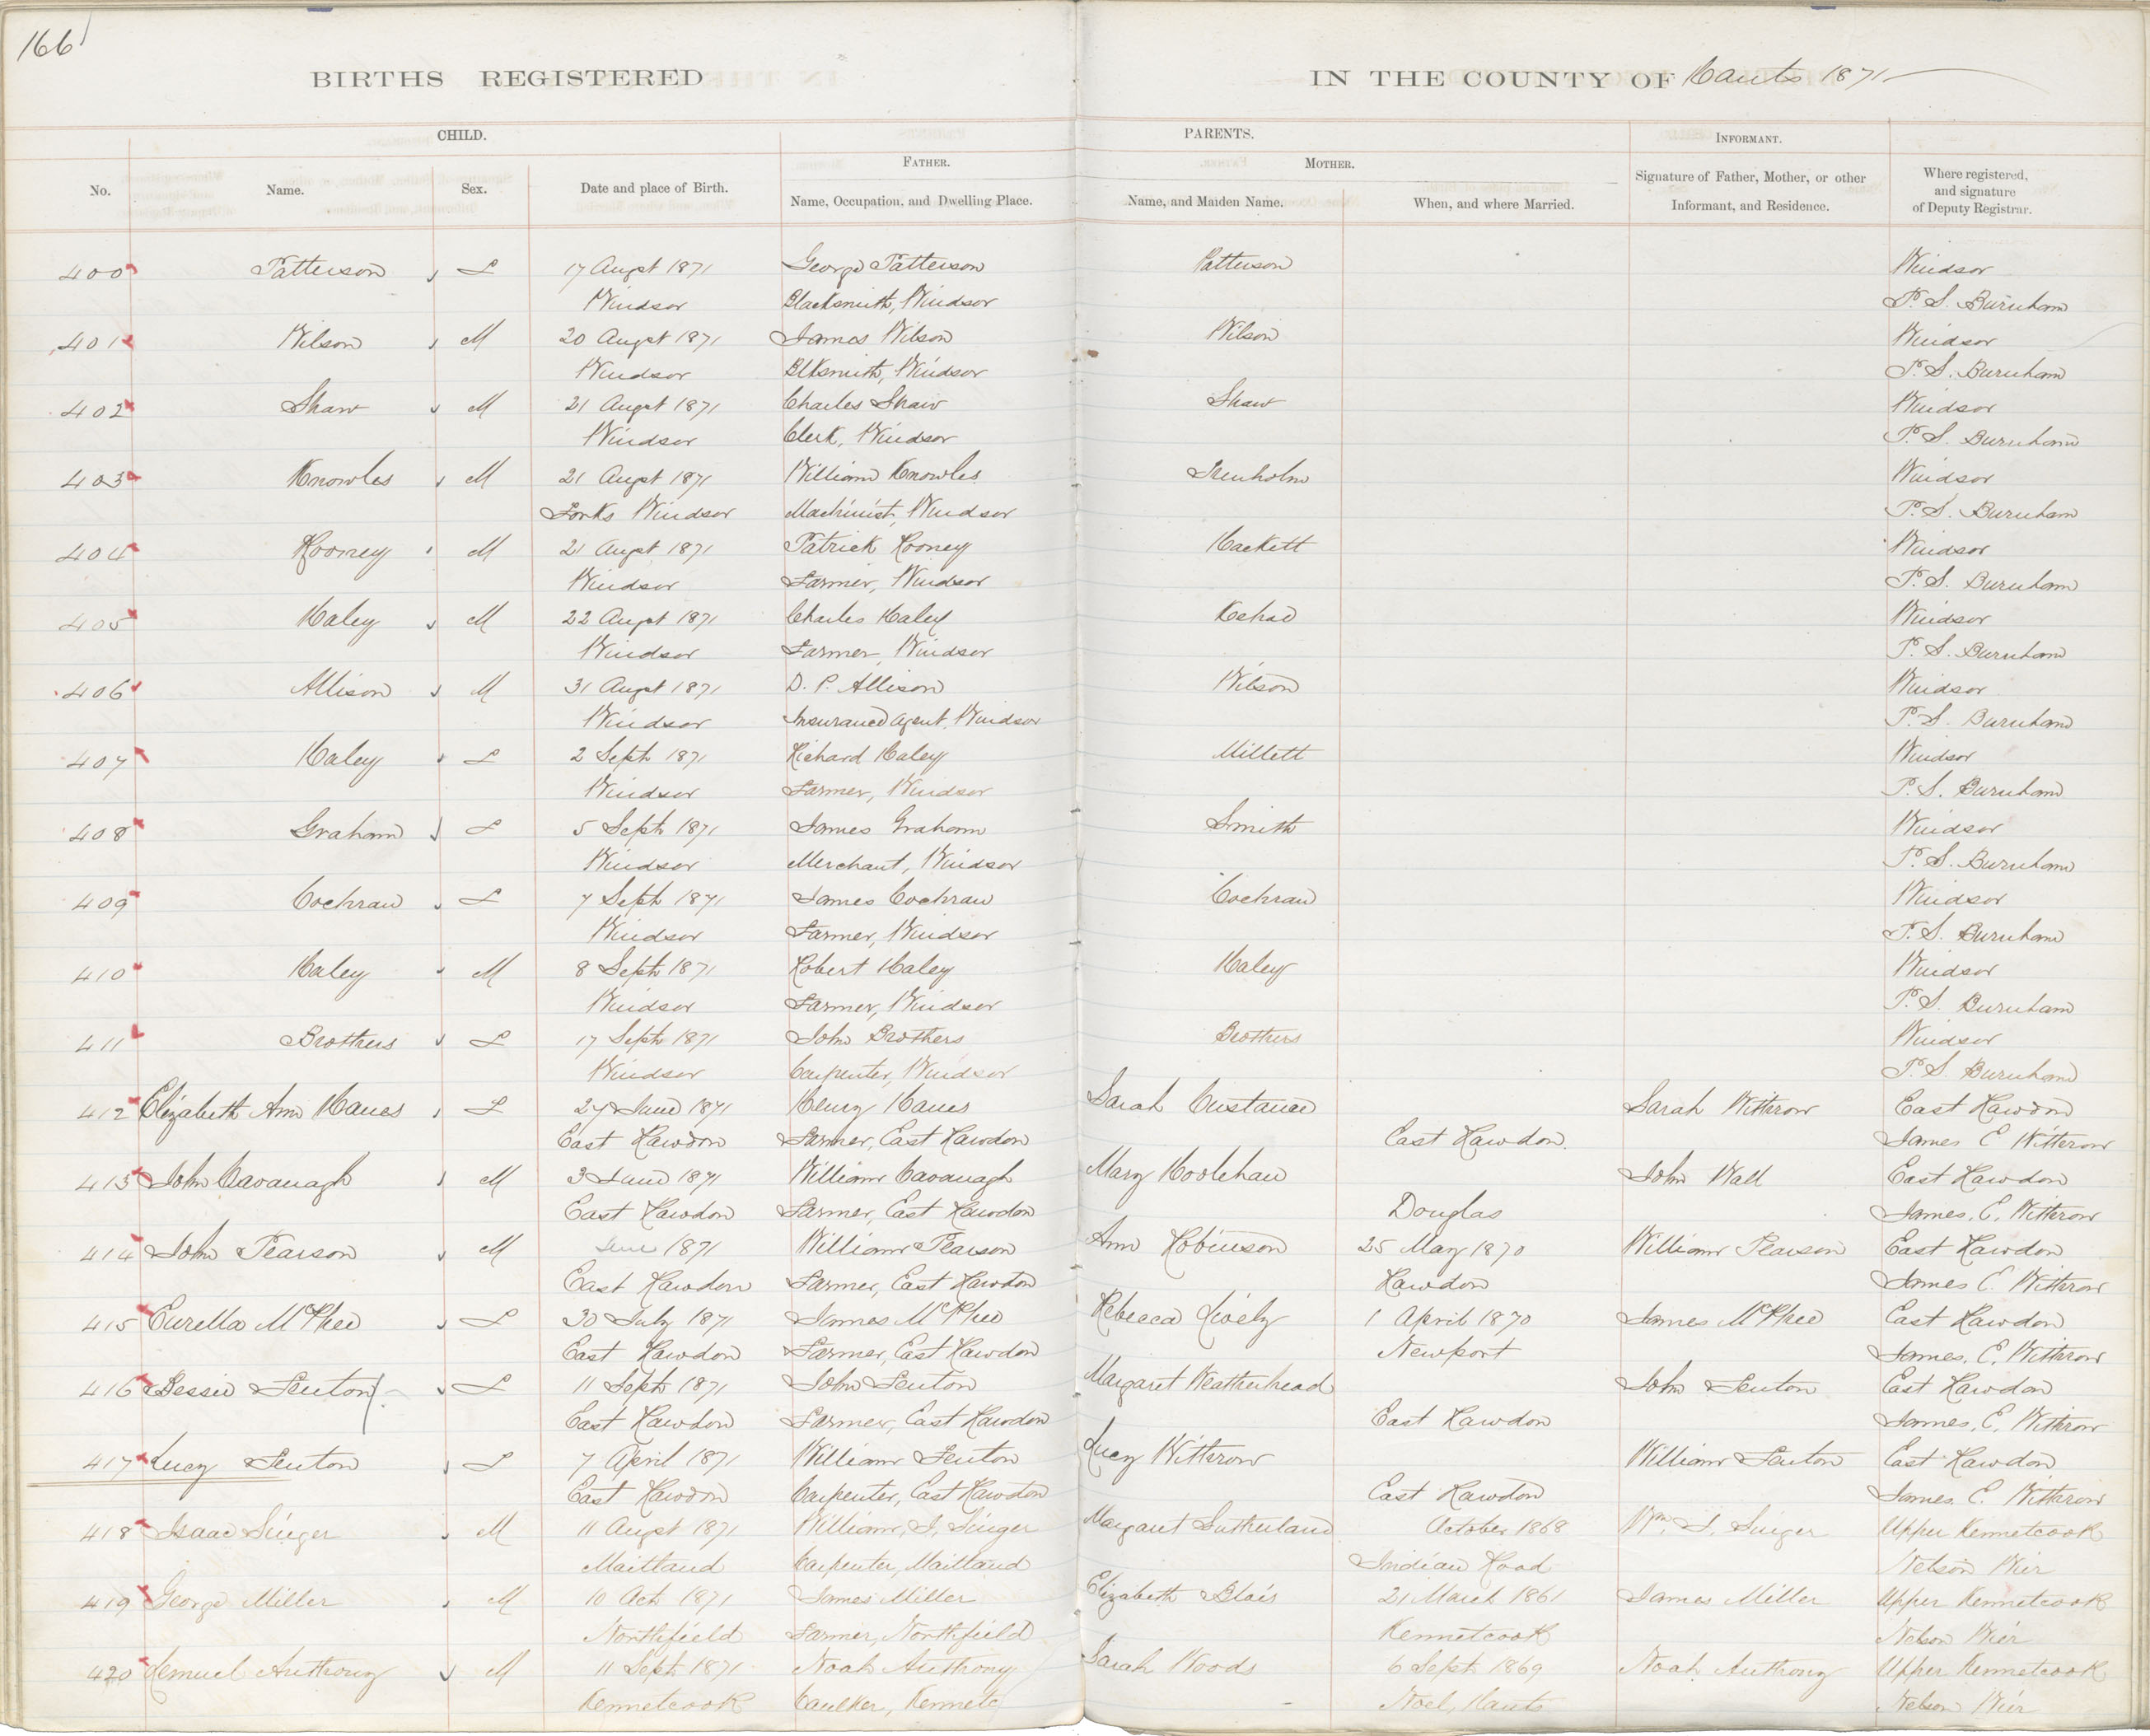 166
BIRTHS REGISTERED IN THE COUNTY OF Hants 1871
CHILD. PARENTS. INFORMANT.
FATHER. MOTHER.
No. Name. Sex. Date and place of Birth. Name, Occupation, and Dwelling Place. Name, and Maiden Name. When, and where Married. Signature of Father, Mother, or other Informant, and Residence. Where registered, and signature of Deputy Registrar.
400 Patterson F 17 Augst 1871 George Patterson Patterson Windsor
Windsor Blacksmith, Windsor P. S. Burnham
401 Wilson M 20 Augst 1871 James Wilson Wilson Windsor
Windsor Blksmith, Windsor P. S. Burnham
402 Shaw M 21 Augst 1871 Charles Shaw Shaw Windsor
Windsor Clerk, Windsor P. S. Burnham
403 Knowles M 21 Augst 1871 William Knowles Trenholm Windsor
Forks Windsor Machinist, Windsor P. S. Burnham
404 Rooney M 21 Augst 1871 Patrick Rooney Hackett Windsor
Windsor Farmer, Windsor P. S. Burnham
405 Haley M 22 Augst 1871 Charles Haley Windsor
Windsor Farmer, Windsor P. S. Burnham
406 Allison M 31 Augst 1871 D. P. Allison Wilson Windsor
Windsor Insurance Agent, Windsor P. S. Burnham
407 Haley F 2 Sept 1871 Richard Haley Millett Windsor
Windsor Farmer, Windsor P. S. Burnham
408 Graham F 5 Sept 1871 James Graham Smith Windsor
Windsor Merchant, Windsor P. S. Burnham
409 Cochran F 7 Sept 1871 James Cochran Cochran Windsor
Windsor Farmer, Windsor P. S. Burnham
410 Haley M 8 Sept 1871 Robert Haley Haley Windsor
Windsor Farmer, Windsor P. S. Burnham
411 Brothers F 17 Sept 1871 John Brothers Brothers Windsor
Windsor Carpenter, Windsor P. S. Burnham
412 Elizabeth Ann Hanes F 27 June 1871 Henry Hanes Sarah Custance Sarah Withrow East Rawdon
East Rawdon Farmer, East Rawdon East Rawdon James E Withrow
413 John Cavanagh M 3 June 1871 William Cavanagh Mary Hoolehan John Wall East Rawdon
East Rawdon Farmer, East Rawdon Douglas James. E. Withrow
414 John Pearson M June 1871 William Pearson Ann Robinson 25 May 1870 William Pearson East Rawdon
East Rawdon Farmer, East Rawdon Rawdon James E. Withrow
415 Eurella McPhee F 30 July 1871 James McPhee Rebecca Lively 1 April 1870 James McPhee East Rawdon
East Rawdon Farmer, East Rawdon Newport James. E. Withrow
416 Bessie Fenton F 11 Sept 1871 John Fenton Margaret Weatherhead John Fenton East Rawdon
East Rawdon Farmer, East Rawdon East Rawdon James. E. Withrow
417 Lucy Fenton F 7 April 1871 William Fenton Lucy Withrow William Fenton East Rawdon
East Rawdon Carpenter, East Rawdon East Rawdon James E. Withrow
418 Isaac Singer M 11 Augst 1871 William J. Singer Margaret Sutherland October 1868 Wm. J. Singer Upper Kennetcook
Maitland Carpenter, Maitland Indian Road Nelson Wier
419 George Miller M 10 Oct 1871 James Miller Elizabeth Blois 21 March 1861 James Miller Upper Kennetcook
Northfield Farmer, Northfield Kennetcook Nelson Wier
420 Lemuel Anthony M 11 Sept 1871 Noah Anthony Sarah Woods 6 Sept 1869 Noah Anthony Upper Kennetcook
Kennetcook Caulker, Kennetc Noel, Hants Nelson Wier